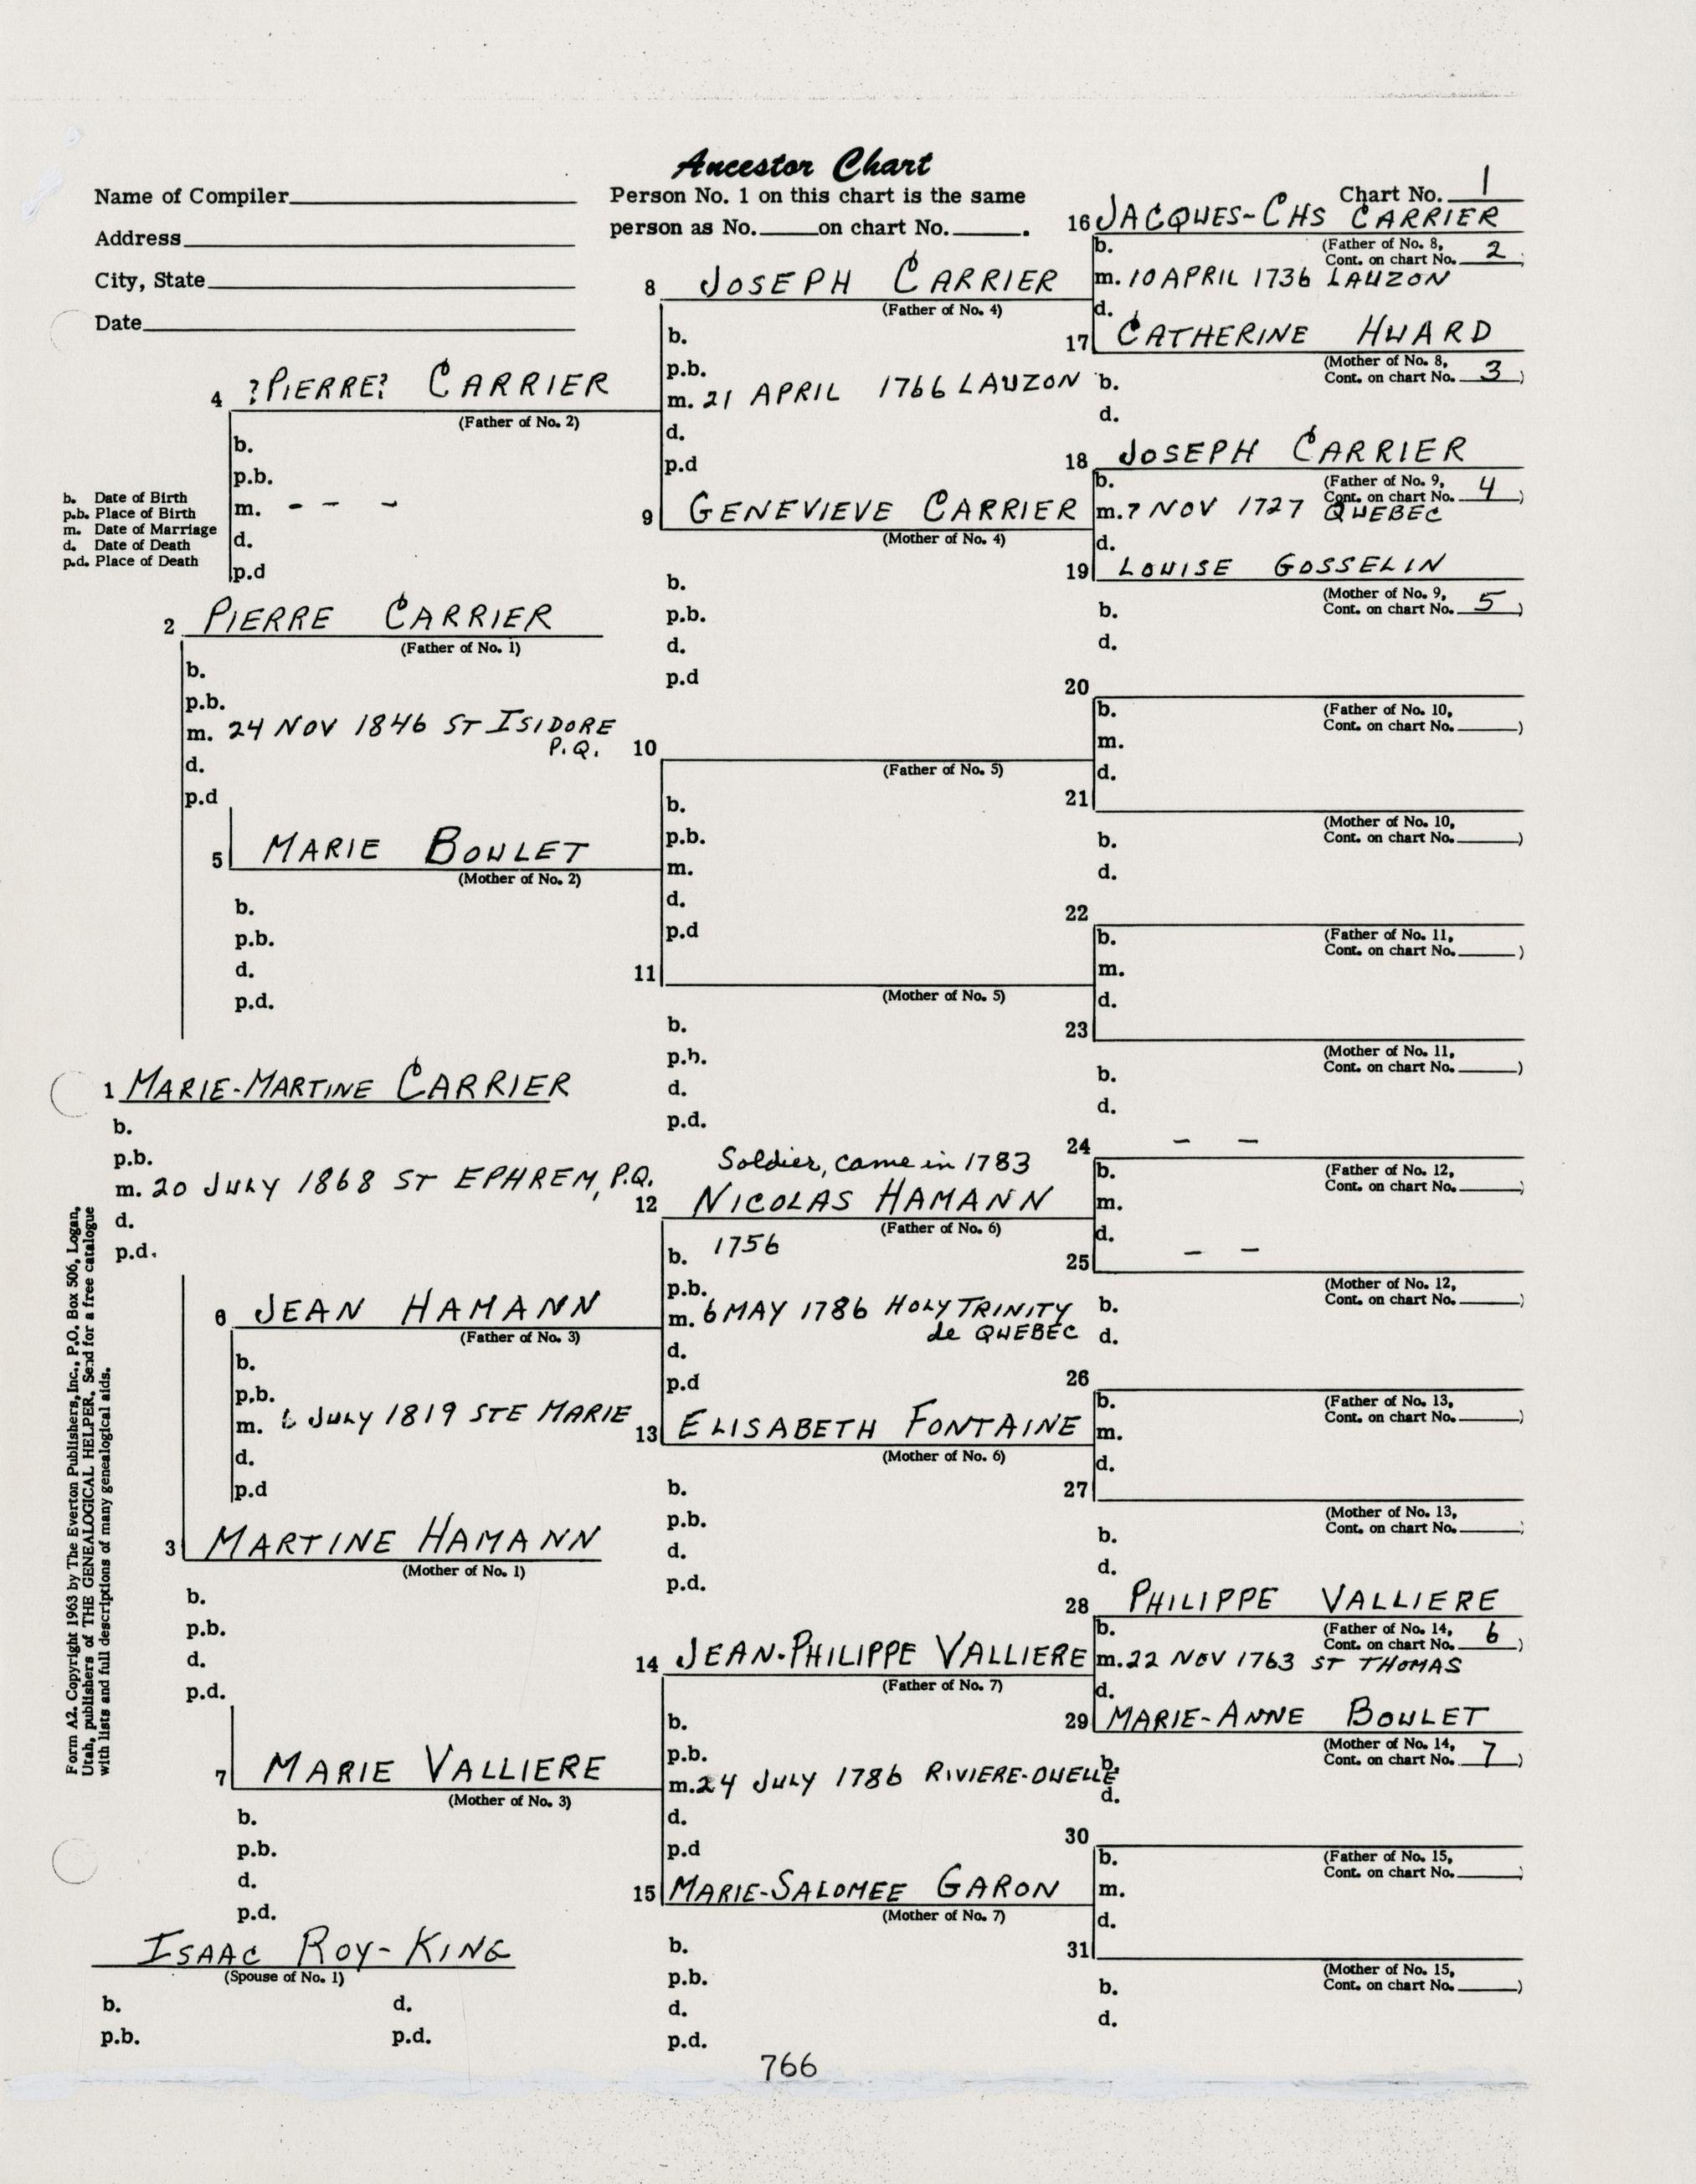 Ancestor Chart
Name of Compiler
Address
City, State
Date
Person No. 1 on this chart is the same
person as No. on chart No. .
Chart No. 1
16 JACQUES-CHS CARRIER
b. (Father of No. 8,
Cont. on chart No. 2
m. 10 APRIL 1736 LAUZON
d.
17 CATHERINE HUARD
(Mother of No. 8,
Cont. on chart No. 3)
b.
d.
8 JOSEPH CARRIER
(Father of No. 4)
b.
p.b.
m. 21 APRIL 1766 LAUZON
d.
p.d
4 ?PIERRE? CARRIER
(Father of No. 2)
b.
p.b.
m. - - -
d.
p.d
b. Date of Birth
p.b. Place of Birth
m. Date of Marriage
d. Date of Death
p.d. Place of Death
18 JOSEPH CARRIER
b. (Father of No. 9,
Cont. on chart No. 4)
m. 7 NOV 1727 QUEBEC
d.
9 GENEVIEVE CARRIER
(Mother of No. 4)
b.
p.b.
d.
p.d
19 LOUISE GOSSELIN
(Mother of No. 9,
Cont. on chart No. 5)
b.
d.
2 PIERRE CARRIER
(Father of No. 1)
b.
p.b.
m. 24 NOV 1846 ST ISIDORE
P.Q.
d.
p.d
20
b. (Father of No. 10,
Cont. on chart No. )
m.
d.
10
(Father of No. 5)
b.
p.b.
m.
d.
p.d
21
(Mother of No. 10,
Cont. on chart No. )
b.
d.
5 MARIE BOULET
(Mother of No. 2)
b.
p.b.
d.
p.d.
22
b. (Father of No. 11,
Cont. on chart No. )
m.
d.
11
(Mother of No. 5)
b.
p.b.
d.
p.d.
23
(Mother of No. 11,
Cont. on chart No. )
b.
d.
1 MARIE-MARTINE CARRIER
b.
p.b.
m. 20 JULY 1868 ST EPHREM, P.Q.
d.
p.d.
24 - -
b. (Father of No. 12,
Cont. on chart No. )
m.
d.
Soldier, came in 1783
12 NICOLAS HAMANN
(Father of No. 6)
b. 1756
p.b.
m. 6 MAY 1786 HOLY TRINITY
de QUEBEC
d.
p.d
25 - -
(Mother of No. 12,
Cont. on chart No. )
b.
d.
6 JEAN HAMANN
(Father of No. 3)
b.
p.b.
m. 6 JULY 1819 STE MARIE
d.
p.d
26
b. (Father of No. 13,
Cont. on chart No. )
m.
d.
13 ELISABETH FONTAINE
(Mother of No. 6)
b.
p.b.
d.
p.d.
27
(Mother of No. 13,
Cont. on chart No.
b.
d.
3 MARTINE HAMANN
(Mother of No. 1)
b.
p.b.
d.
p.d.
28 PHILIPPE VALLIERE
b. (Father of No. 14,
Cont. on chart No. 6)
m. 22 NOV 1763 ST THOMAS
d.
14 JEAN-PHILIPPE VALLIERE
(Father of No. 7)
b.
p.b.
m. 24 JULY 1786 RIVIERE-OUELLE
d.
p.d
29 MARIE-ANNE BOULET
(Mother of No. 14,
Cont. on chart No. 7)
b.
d.
7 MARIE VALLIERE
(Mother of No. 3)
b.
p.b.
d.
p.d.
30
b. (Father of No. 15,
Cont. on chart No.
m.
d.
15 MARIE-SALOMEE GARON
(Mother of No. 7)
b.
p.b.
d.
p.d.
31
(Mother of No. 15,
Cont. on chart No. )
b.
d.
ISAAC ROY-KING
(Spouse of No. 1)
b. d.
p.b. p.d.
Form A2. Copyright 1963 by The Everton Publishers, Inc., P.O. Box 506, Logan,
Utah, publishers of THE GENEALOGICAL HELPER. Send for a free catalogue
with lists and full descriptions of many genealogical aids.
766